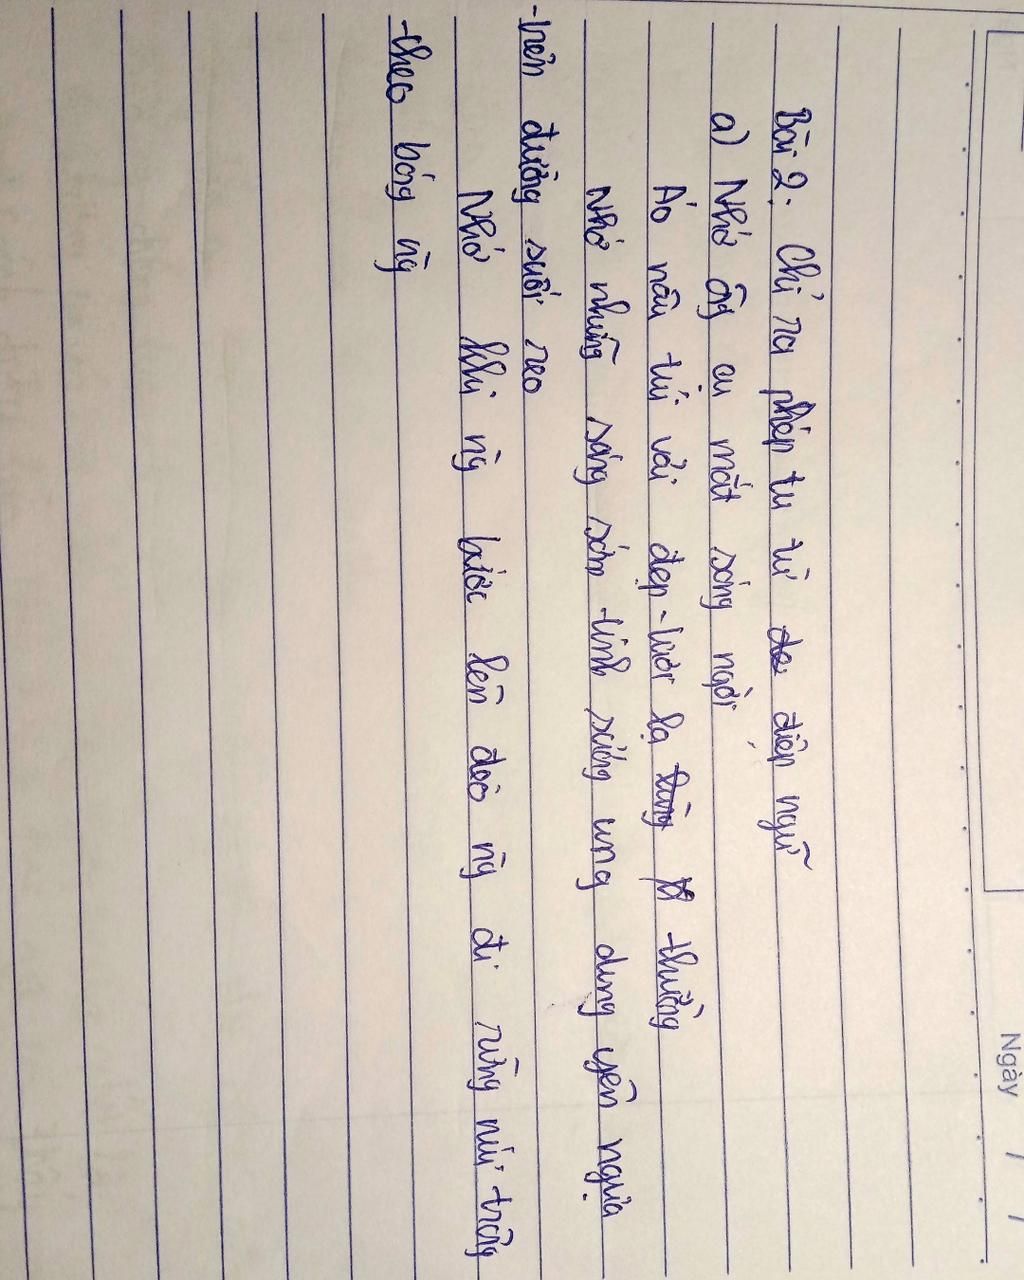 Ngày / /
Bài 2: Chỉ ra phép tu từ điệp ngữ
a) Nhớ ôg cụ mắt sáng ngời
Áo nâu túi vải đẹp tươi lạ thường
Nhớ những sáng sớm tinh sương ung dung yên ngựa
trên đường suối reo
Nhớ khi ng̀ bước lên đèo ng̀ đi rừng núi trông
theo bóng ng̀